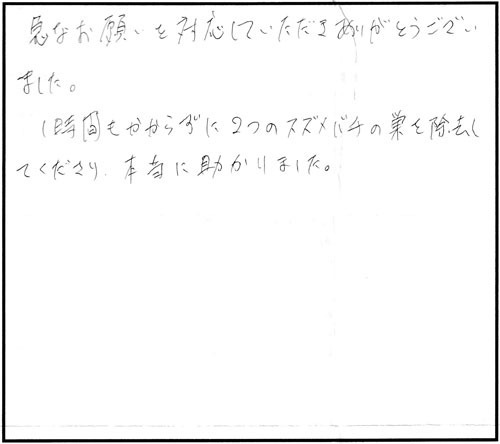 急なお願いを対応していただきありがとうござい
ました。
1時間もかからずに2つのスズメバチの巣を除去し
てくださり、本当に助かりました。